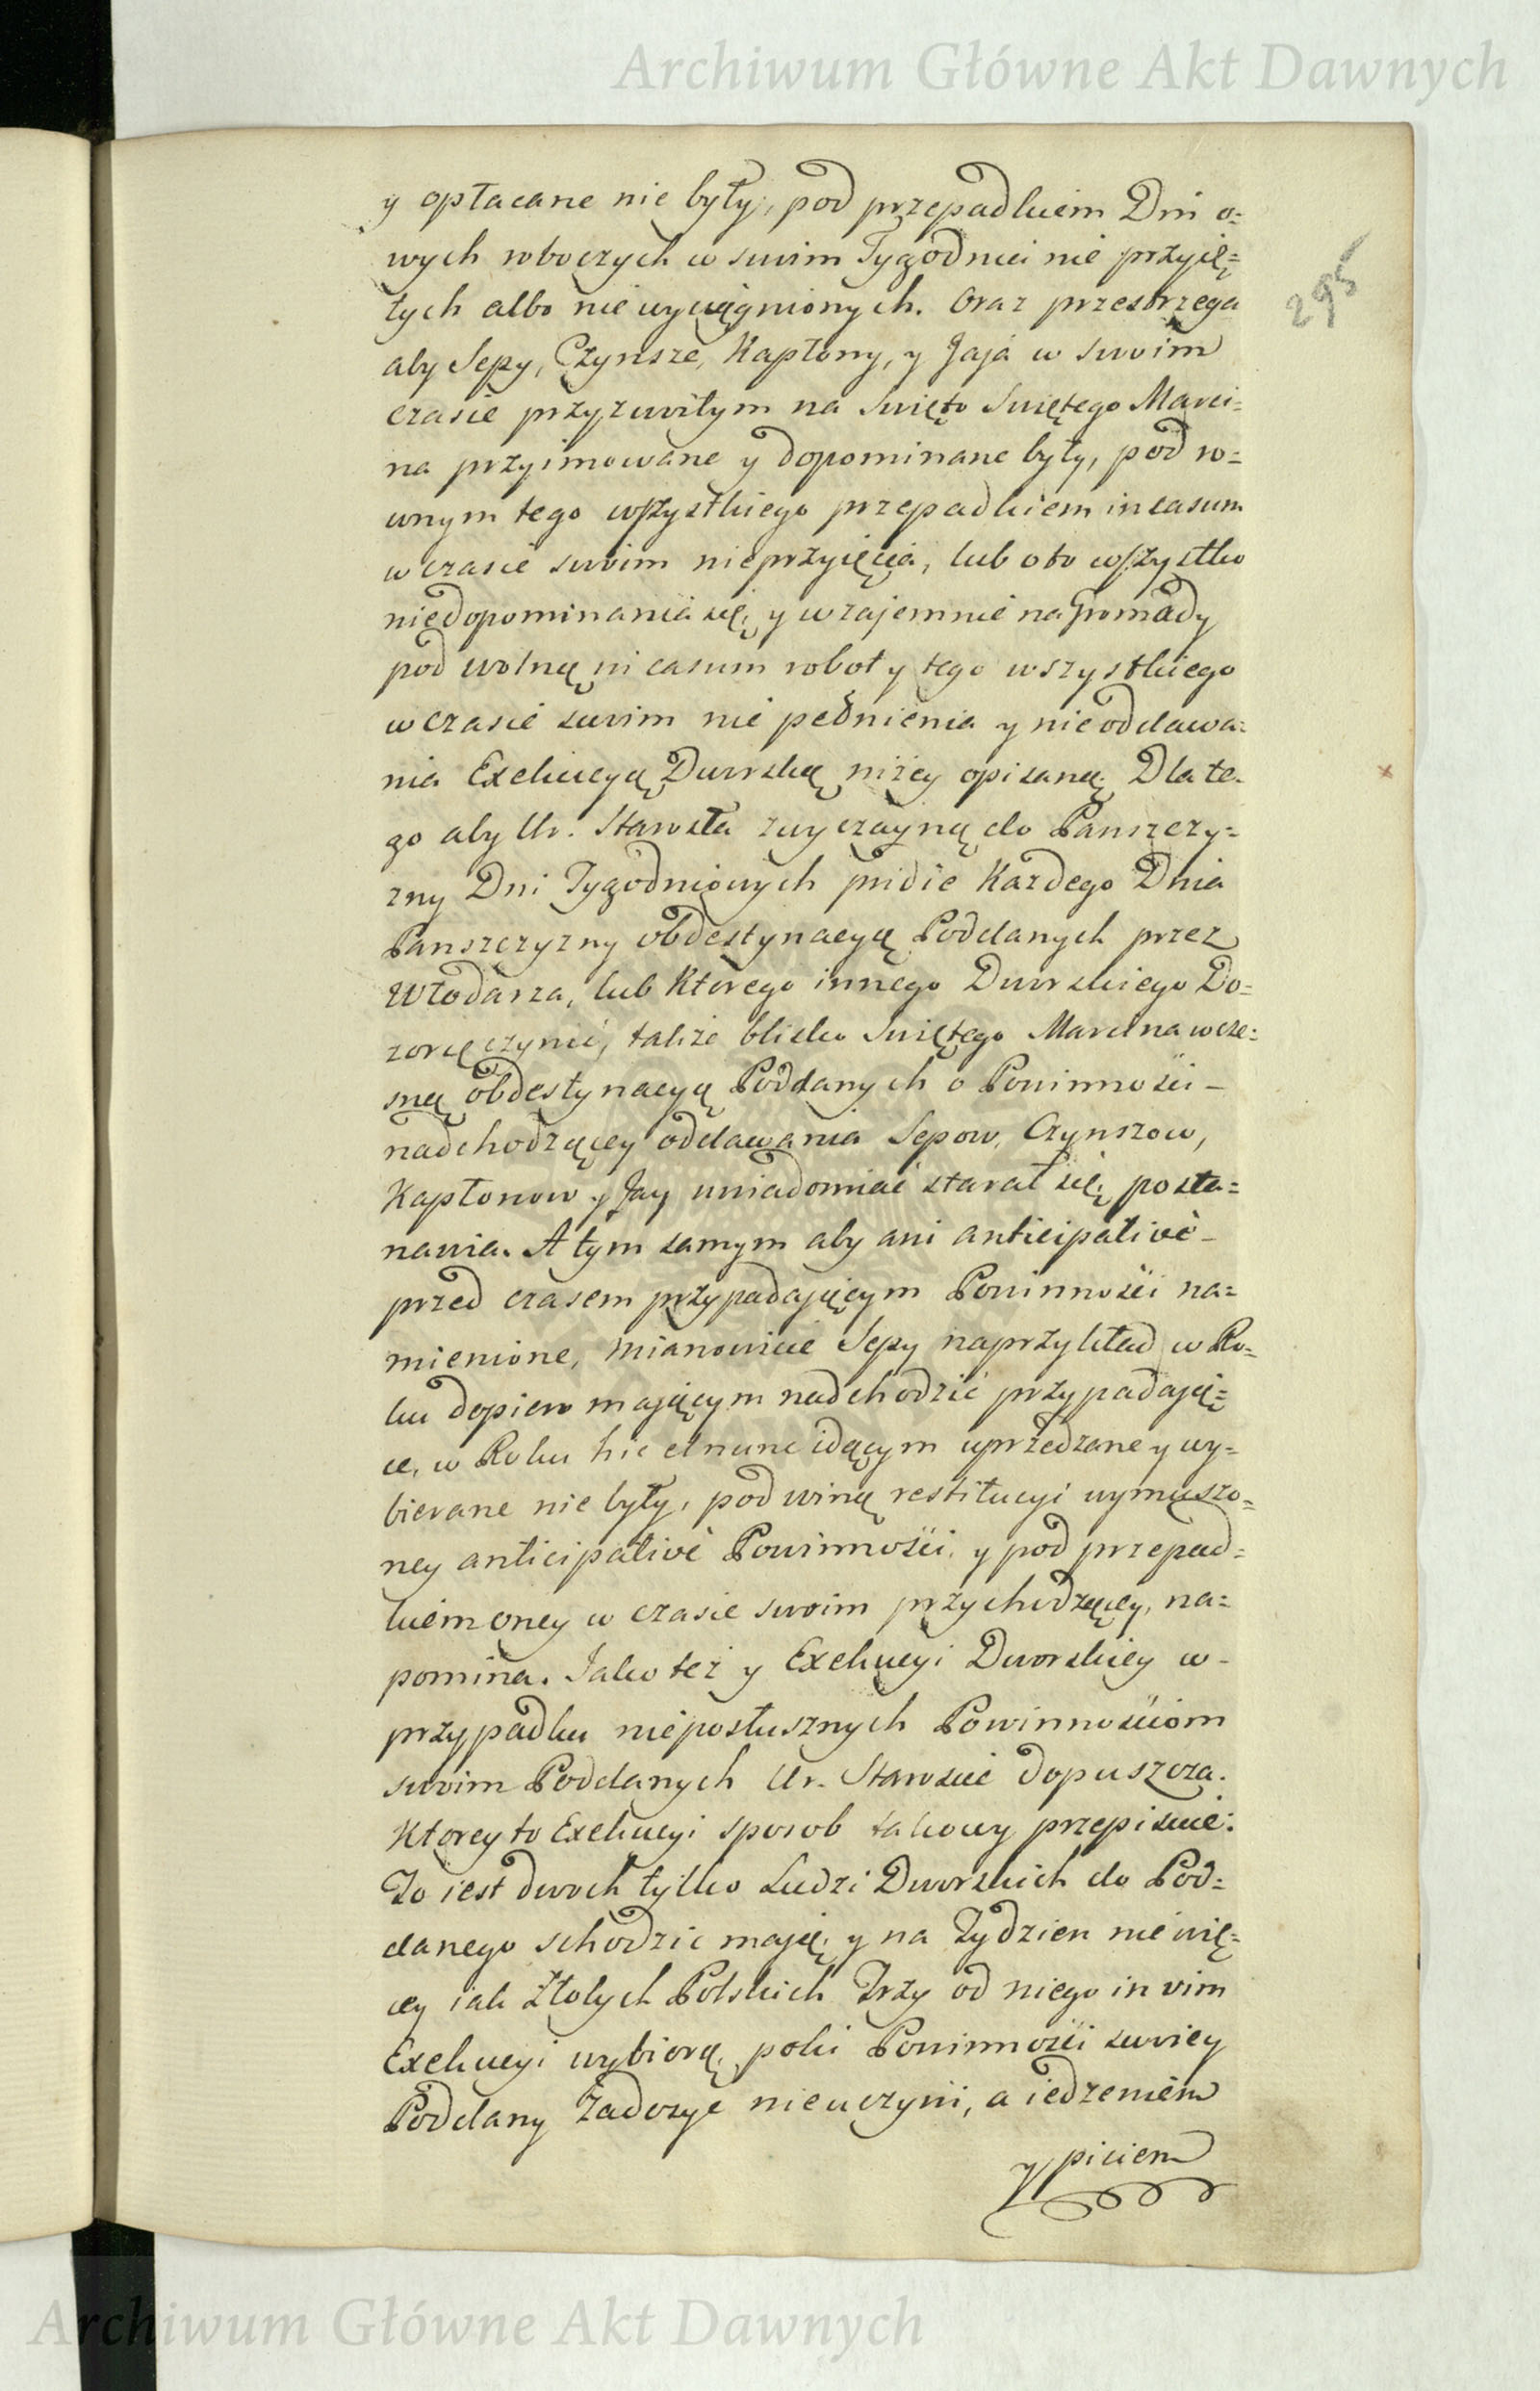 Archiwum Główne Akt Dawnych
y opłacane nie były, pod przepadkiem Dni o=
wych roboczych w swoim Tygodniu nie przyię=
tych albo nie wyciągnionych. Oraz przestrzega
295
aby Sepy, Czynsze, Kapłony, y Jaja w swoim
czasie przyzwoitym na Swięto Swiętego Marci=
na przyimowane y dopominane były, pod ro=
wnym tego wszystkiego przepadkiem in casum
w czasie swoim nieprzyięcia, lub o to wszystko
niedopominania się, y wzajemnie na Gromady
pod wolną in casum roboty tego wszystkiego
w czasie swoim nie pełnienia y nie oddawa=
nia Exekucyą Dworską niżey opisaną. Dla te=
go aby Ur. Starosta zwyczayną do Panszczy=
zny Dni Tygodniowych pridie Kazdego Dnia
Panszczyzny obdestynacyą Poddanych przez
Włodarza, lub Ktorego innego Dworskiego Do=
zorcę czynić, także blisko Swiętego Marcina wcze=
sną obdestynacyą Poddanych o Powinności -
nadchodzącey oddawania Sepow, Czynszow,
Kapłonow y Jay uwiadomiać starał się, posta=
nawia. A tym samym aby ani anticipativè -
przed czasem przypadaiącym Powinności na=
mienione, mianowicie Sepy naprzykład w Ro=
ku dopiero maiącym nadchodzić przypadaią=
ce, w Roku hic et nunc idącym uprzedzane y wy=
bierane nie były, pod winą restitucyi wymuszo=
ney anticipativè Powinności, y pod przepad=
kiem oney w czasie swoim przychodzącey, na=
pomina. Jako też y Exekucyi Dworskiey w -
przypadku nieposłusznych Powinnościom
swoim Poddanych Ur. Staroscie dopuszcza.
Ktorey to Exekucyi sposob takowy przepisuie:
To iest dwoch tylko Ludzi Dworskich do Pod=
danego schodzic maią, y na Tydzien nie wię=
cy iak Złotych Polskich Trzy od niego in vim
Exekucyi wybiorą, poki Powinności swoiey
Poddany Zadosyc nie uczyni, a iedzeniem
y piciem
Archiwum Główne Akt Dawnych